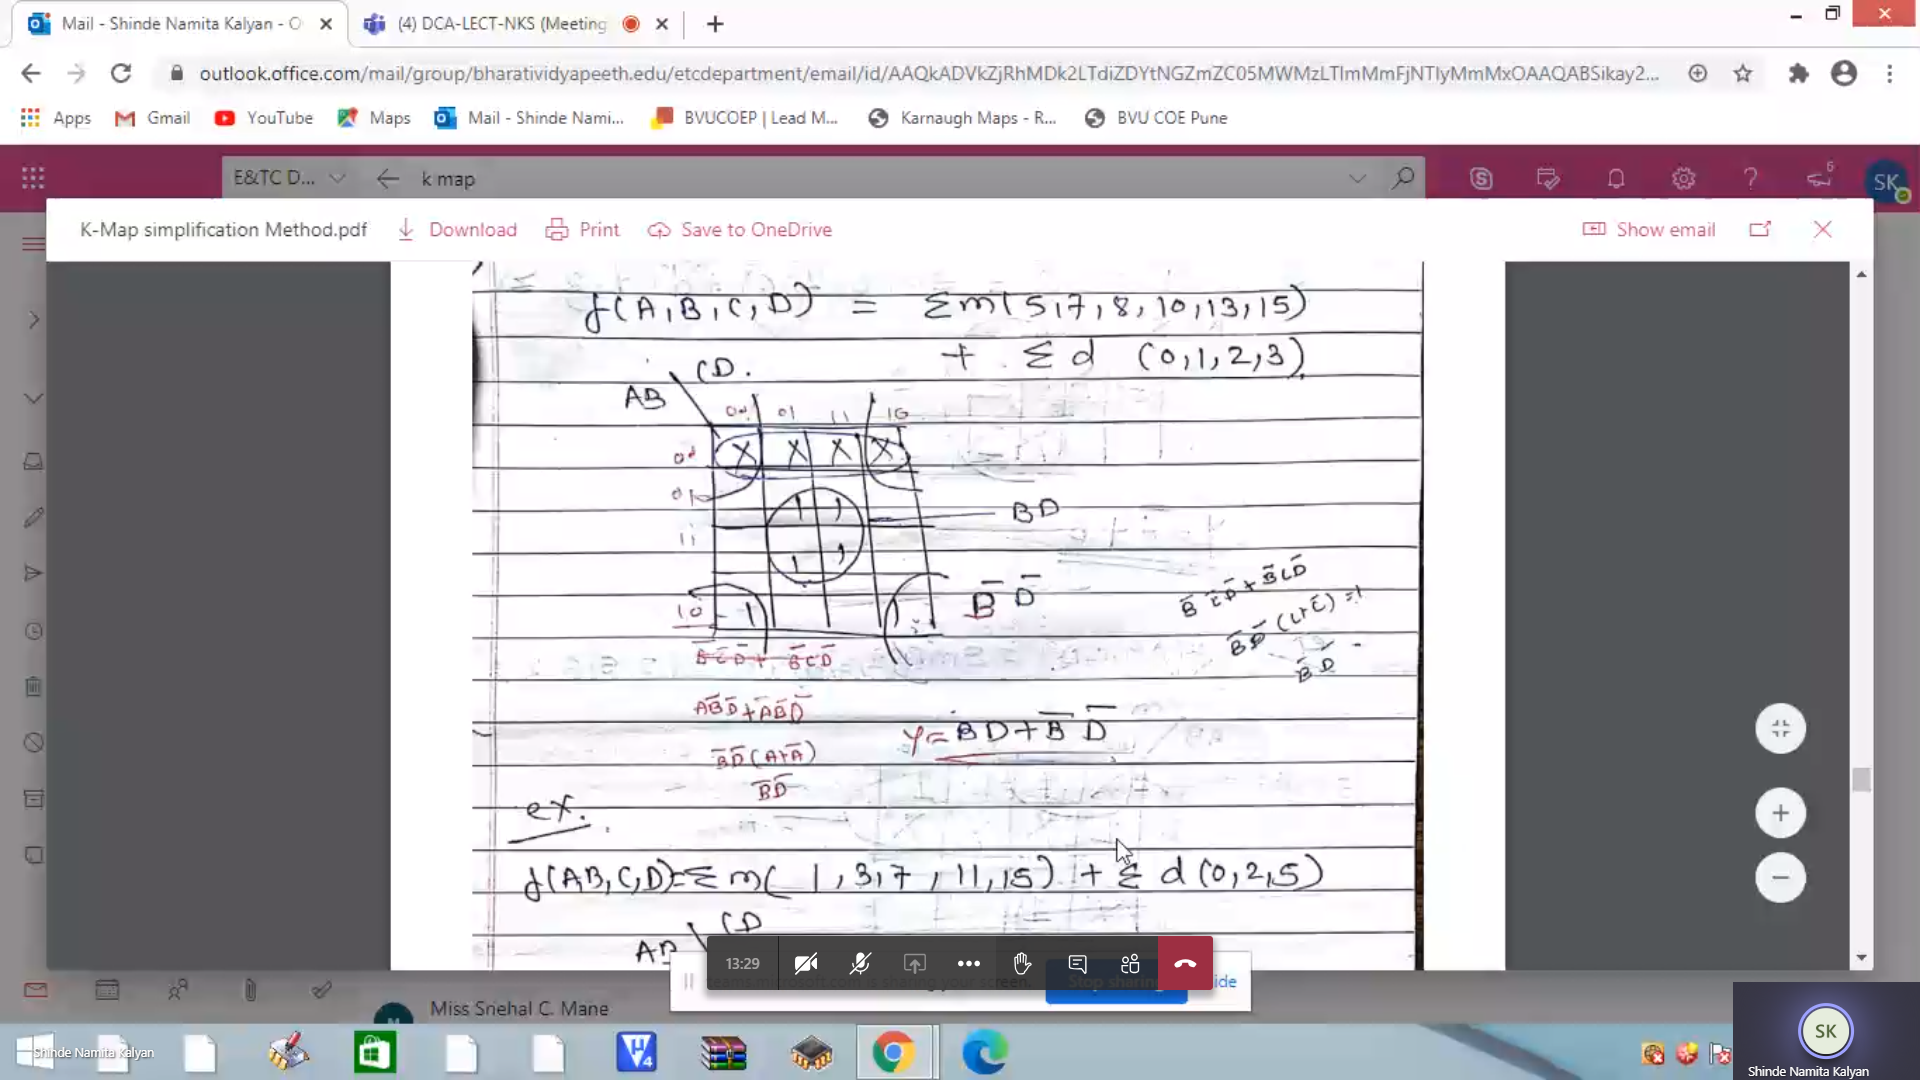 Mail - Shinde Namita Kalyan - O
(4) DCA-LECT-NKS (Meeting
outlook.office.com/mail/group/bharatividyapeeth.edu/etcdepartment/email/id/AAQkADVkZjRhMDk2LTdiZDYtNGZmZC05MWMzLTlmMmFjNTIyMmMxOAAQABSikay2...
Apps
Gmail
YouTube
Maps
Mail - Shinde Nami...
BVUCOEP | Lead M...
Karnaugh Maps - R...
BVU COE Pune
E&TC D...
k map
6
SK
K-Map simplification Method.pdf
Download
Print
Save to OneDrive
Show email
f(A,B,C,D) = Σm(5,7,8,10,13,15)
+ Σd (0,1,2,3)
CD.
AB
00 01 11 10
00 X X X X
01 1 1
BD
11 1 1
10 1 1
B̅ D̅
B̅C̅D̅ + B̅CD̅
B̅D̅ (C+C̅) = 1
B̅D̅
B̅C̅D̅ + B̅CD̅
AB̅D̅ + A̅B̅D̅
Y = BD + B̅ D̅
B̅D̅(A+A̅)
B̅D̅
ex.
f(AB,C,D)=Σm( 1,3,7,11,15) + Σd(0,2,5)
CD
AB
13:29
Stop sharing
ide
Miss Snehal C. Mane
Shinde Namita Kalyan
SK
Shinde Namita Kalyan